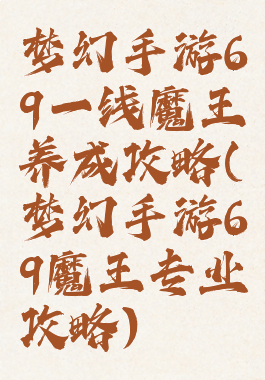 梦幻手游6
9一线魔王
养成攻略(
梦幻手游6
9魔王专业
攻略)